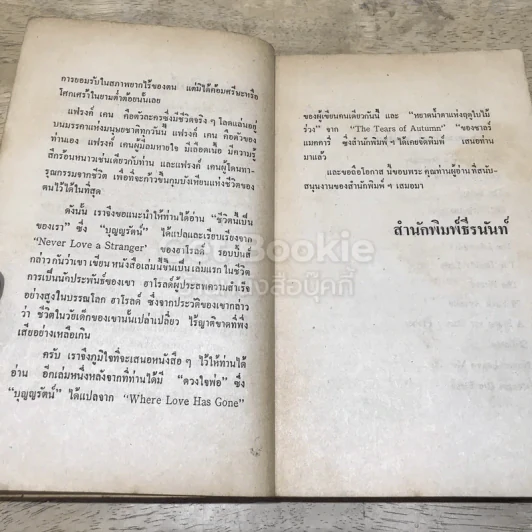 การยอมรับในสภาพยากไร้ของตน แต่มิได้ค้อมศรีษะหรือ
โศกเศร้าในยามต่ำต้อยนั้นเลย
แฟรงค์ เคน คือตัวละครซึ่งมีชีวิตจริง ๆ โลดแล่นอยู่
บนมรรคาแห่งมนุษยชาติทุกวันนี้ แฟรงค์ เคน คือตัวของ
ท่านเอง แฟรงค์ เคน ผู้มีลมหายใจ มีเลือดเนื้อ มีความรู้
สึกร้อนหนาวเช่นเดียวกับท่าน และแฟรงค์ เคน ผู้โดนทา-
รุณกรรมจากชีวิต เพื่อที่จะก้าวขึ้นกุมบังเหียนแห่งชีวิตของ
ตนไว้ได้ในที่สุด
ดังนั้น เราจึงขอแนะนำให้ท่านได้อ่าน “ชีวิตนี้เป็น
ของเรา” ซึ่ง “บุญญรัตน์” ได้แปลและเรียบเรียงจาก
‘Never Love a Stranger’ ของ ฮาโรลด์ รอบบิ้นส์
กล่าวกันว่าเขา เขียน หนังสือเล่มนี้ขึ้นเป็น เล่มแรก ในชีวิต
การเป็นนักประพันธ์ของเขา ฮาโรลด์ผู้ประสพความสำเร็จ
อย่างสูงในบรรณโลก ฮาโรลด์ ซึ่งจากประวัติของเขากล่าว
ว่า ชีวิตในวัยเด็กของเขานั้นเปล่าเปลี่ยว ไร้ญาติขาดที่พึ่ง
เสียอย่างเหลือเกิน
ครับ เราจึงภูมิใจที่จะเสนอหนังสือ ๆ ไว้ให้ท่านได้
อ่าน อีกเล่มหนึ่งหลังจากที่ท่านได้มี “ดวงใจพ่อ” ซึ่ง
“บุญญรัตน์” ได้แปลจาก “Where Love Has Gone”
ของผู้เขียนคนเดียวกันนี้ และ “หยาดน้ำตาแห่งฤดูใบไม้
ร่วง” จาก “The Tears of Autumn” ของชาลร์
แมคคารี่ ซึ่งสำนักพิมพ์ ฯ ได้เคยจัดพิมพ์ เสนอท่าน
มาแล้ว
และขอถือโอกาส นี้ขอบพระ คุณท่านผู้อ่าน ที่สนับ-
สนุนงานของสำนักพิมพ์ ฯ เสมอมา
สำนักพิมพ์ธีรนันท์